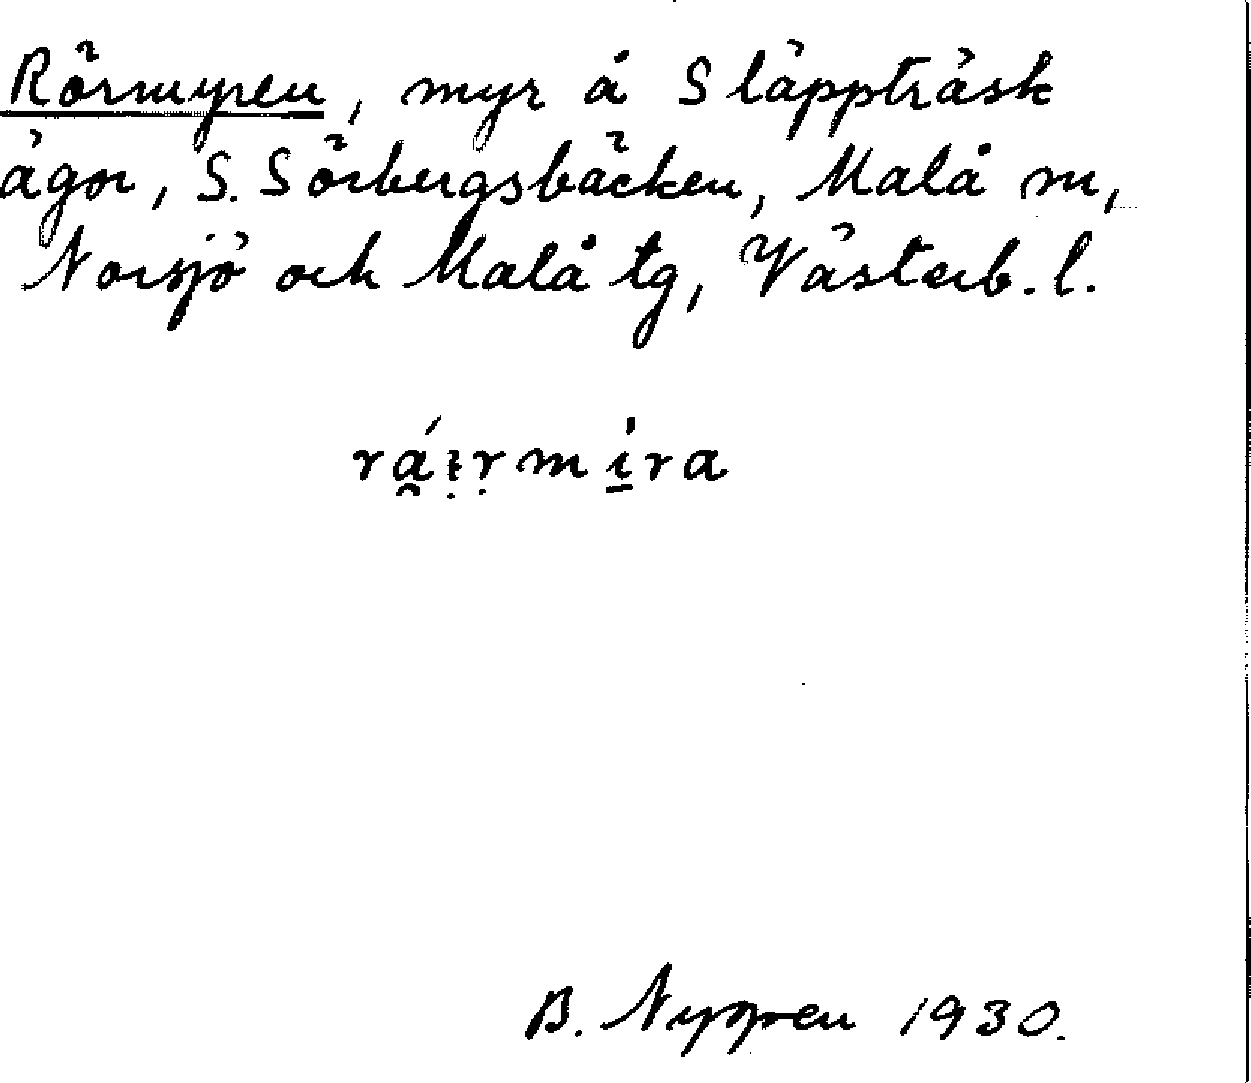 Rörmyren, myr å Släppträsk
ägor, S. Sörbergsbäcken, Malå sn,
Norsjö och Malå tg, Västerb. l.
B. Nygren 1930.